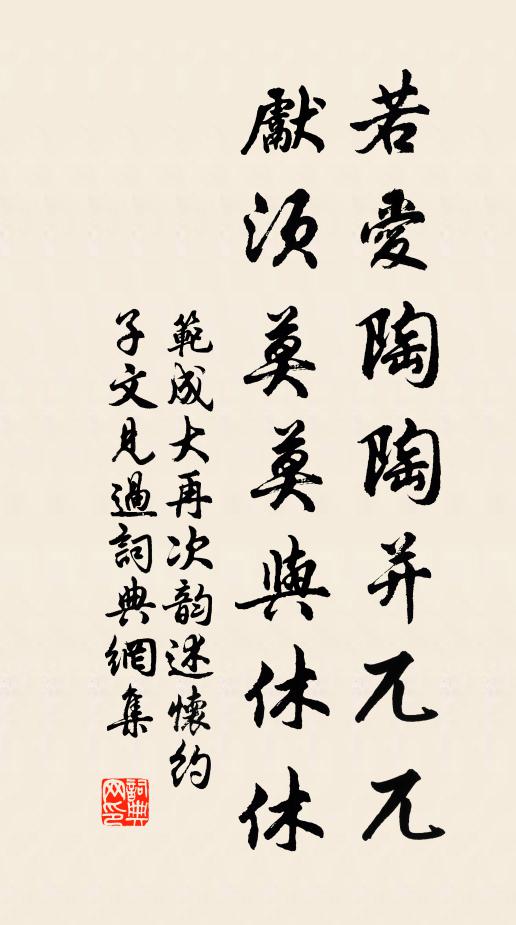 若愛陶陶并兀兀
獻須莫莫與休休
範成大再次韵述懷約
子文見過詞典網集
詞典网印